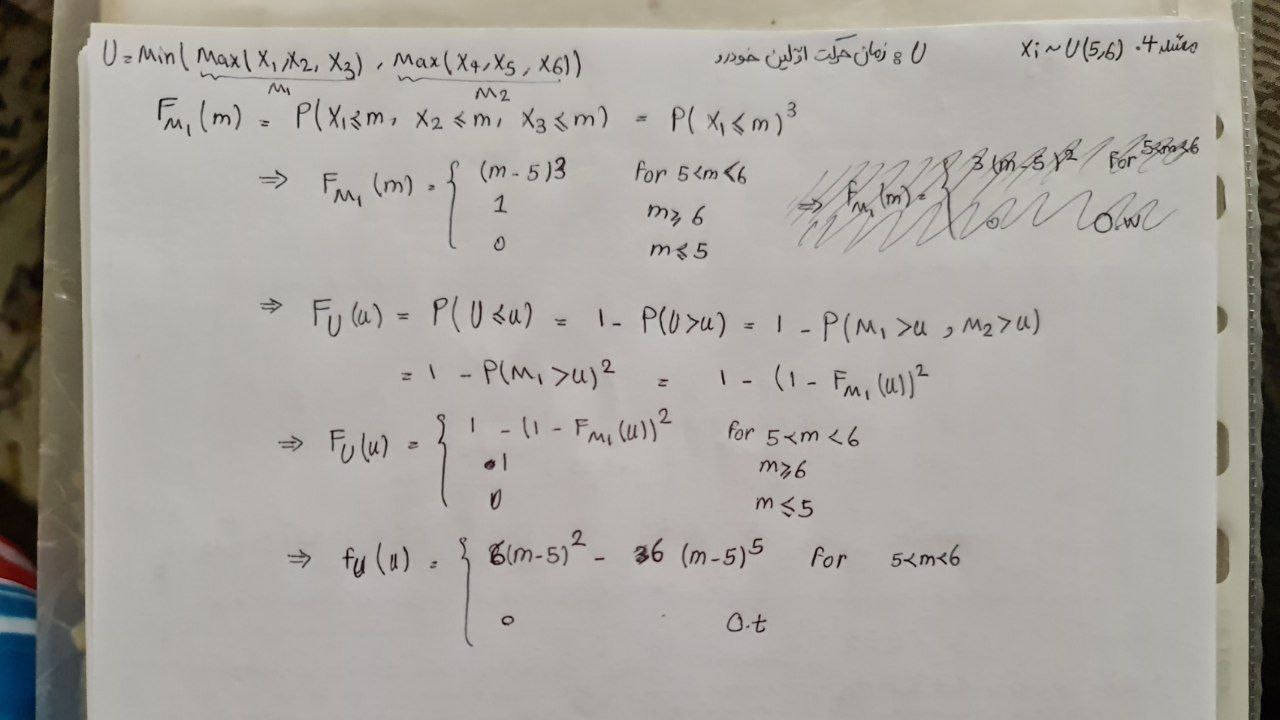 مسئله 4. Xi ~ U(5,6)
U : زمان حرکت اولین خودرو
U = Min( Max(X1, X2, X3) , Max(X4, X5, X6))
M1 M2
FM1(m) = P(X1 ≤ m, X2 ≤ m, X3 ≤ m) = P(X1 ≤ m)^3
⇒ FM1(m) = { (m-5)3 for 5<m<6
1 m ≥ 6
0 m ≤ 5
⇒ FU(u) = P(U ≤ u) = 1 - P(U > u) = 1 - P(M1 > u , M2 > u)
= 1 - P(M1 > u)^2 = 1 - (1 - FM1(u))^2
⇒ FU(u) = { 1 - (1 - FM1(u))^2 for 5<m<6
1 m ≥ 6
0 m ≤ 5
⇒ fU(u) = { 6(m-5)^2 - 6 (m-5)^5 for 5<m<6
0 O.t